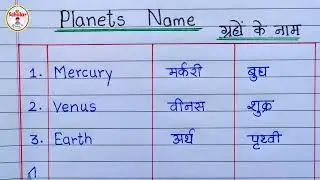 Scholar
Planets Name ग्रहों के नाम
1. Mercury मर्करी बुध
2. Venus वीनस शुक्र
3. Earth अर्थ पृथ्वी